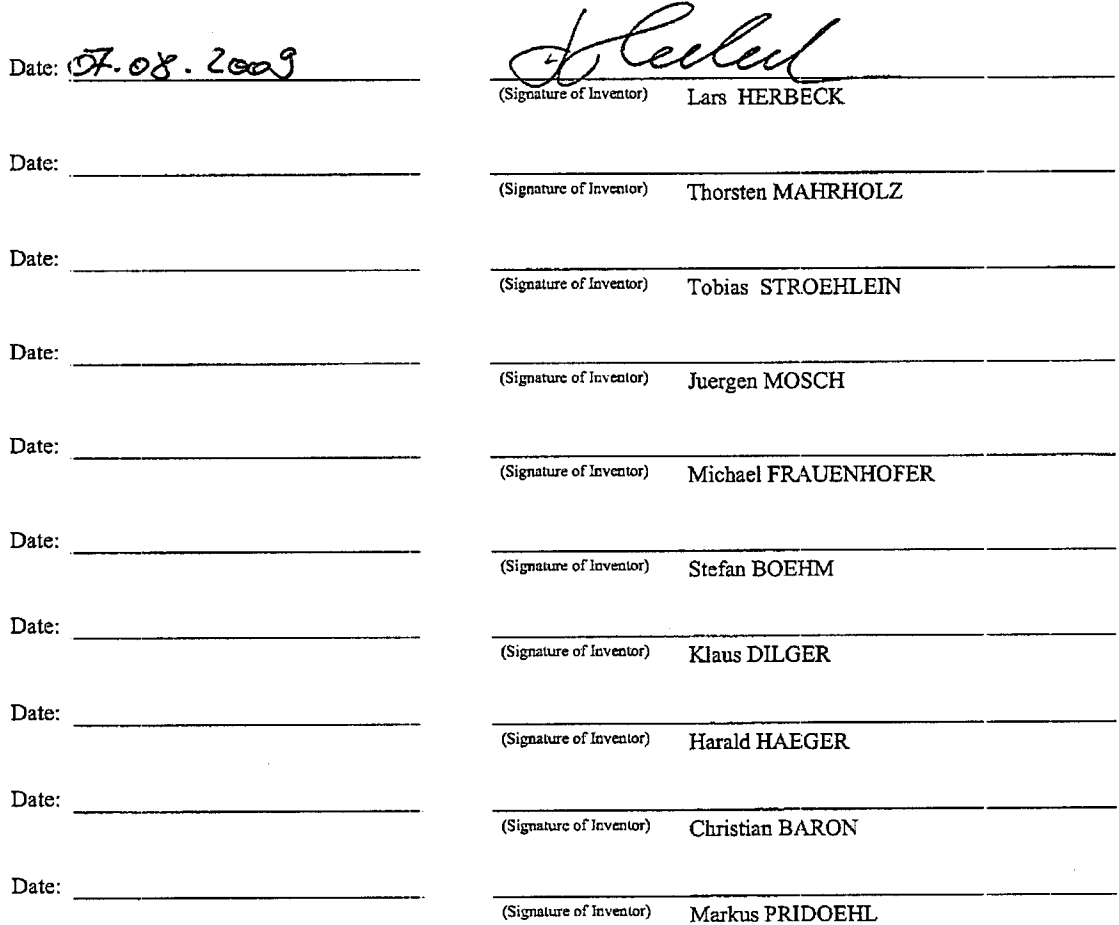 Date: 07.08.2009
(Signature of Inventor) Lars HERBECK
Date:
(Signature of Inventor) Thorsten MAHRHOLZ
Date:
(Signature of Inventor) Tobias STROEHLEIN
Date:
(Signature of Inventor) Juergen MOSCH
Date:
(Signature of Inventor) Michael FRAUENHOFER
Date:
(Signature of Inventor) Stefan BOEHM
Date:
(Signature of Inventor) Klaus DILGER
Date:
(Signature of Inventor) Harald HAEGER
Date:
(Signature of Inventor) Christian BARON
Date:
(Signature of Inventor) Markus PRIDOEHL